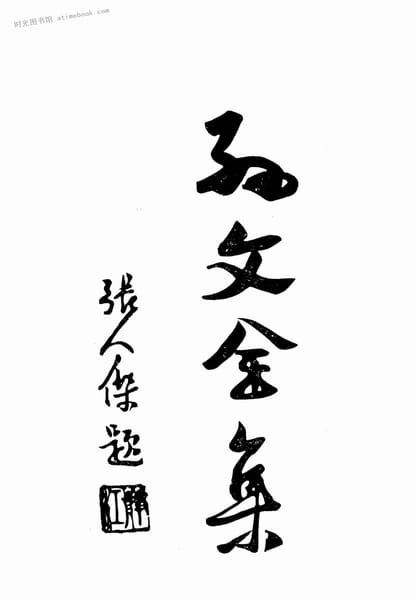 时光图书馆 atimebook.com
孫文全集
張人傑題
靜江